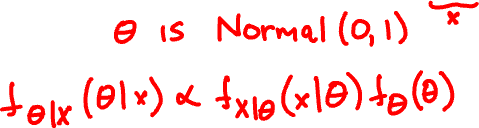 θ is Normal (0,1) x
f_θ|x (θ|x) ∝ f_x|θ (x|θ) f_θ (θ)